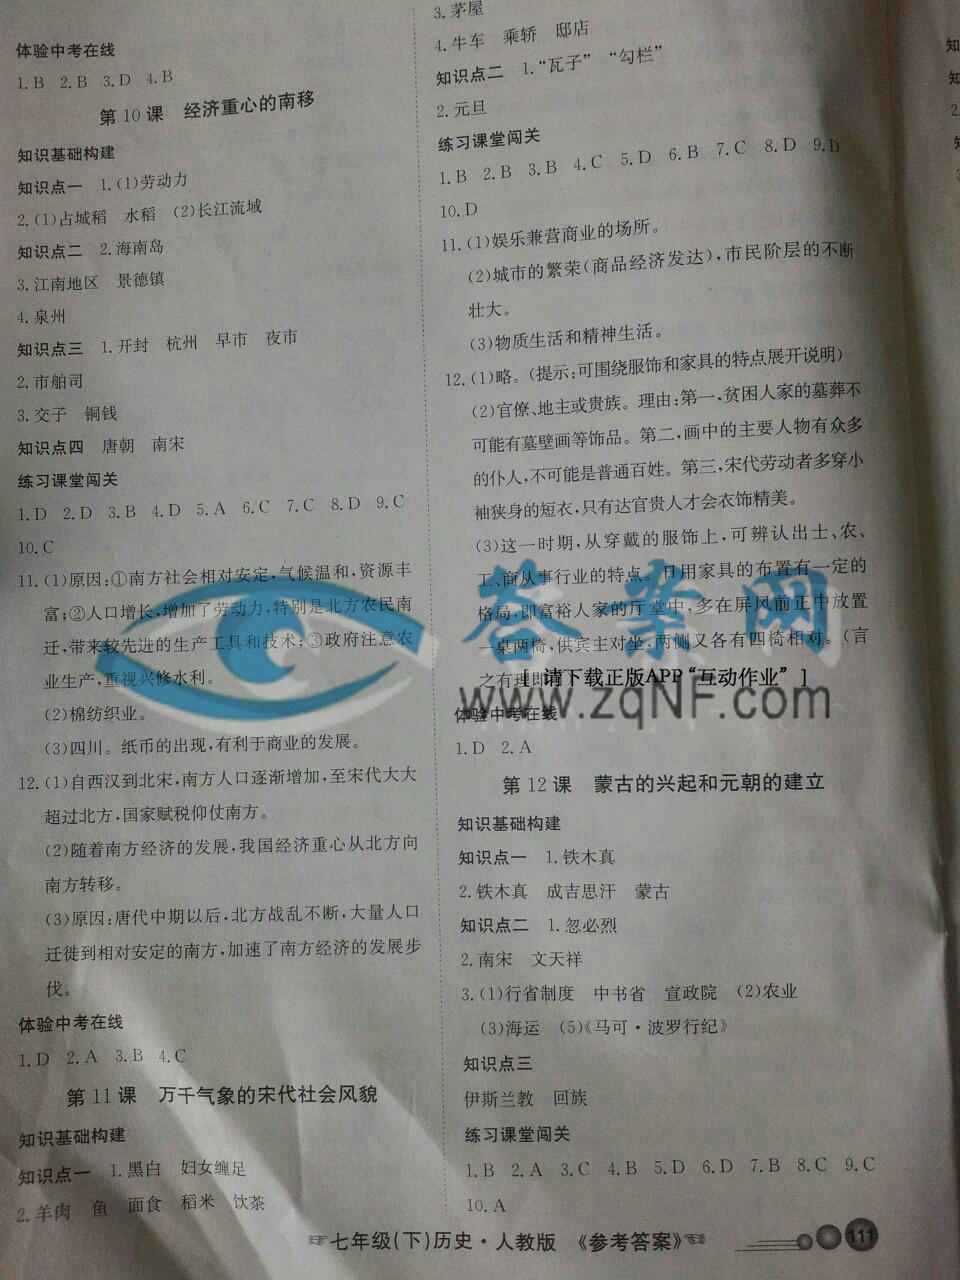 体验中考在线
1.B 2.B 3.D 4.B
第10课 经济重心的南移
知识基础构建
知识点一 1.(1)劳动力
2.(1)占城稻 水稻 (2)长江流域
知识点二 2.海南岛
3.江南地区 景德镇
4.泉州
知识点三 1.开封 杭州 早市 夜市
2.市舶司
3.交子 铜钱
知识点四 唐朝 南宋
练习课堂闯关
1.D 2.D 3.B 4.D 5.A 6.C 7.C 8.D 9.C
10.C
11.(1)原因:①南方社会相对安定,气候温和,资源丰
富;②人口增长,增加了劳动力,特别是北方农民南
迁,带来较先进的生产工具和技术;③政府注意农
业生产,重视兴修水利。
(2)棉纺织业。
(3)四川。纸币的出现,有利于商业的发展。
12.(1)自西汉到北宋,南方人口逐渐增加,至宋代大大
超过北方,国家赋税仰仗南方。
(2)随着南方经济的发展,我国经济重心从北方向
南方转移。
(3)原因:唐代中期以后,北方战乱不断,大量人口
迁徙到相对安定的南方,加速了南方经济的发展步
伐。
体验中考在线
1.D 2.A 3.B 4.C
第11课 万千气象的宋代社会风貌
知识基础构建
知识点一 1.黑白 妇女缠足
2.羊肉 鱼 面食 稻米 饮茶
3.茅屋
4.牛车 乘轿 邸店
知识点二 1.“瓦子” “勾栏”
2.元旦
练习课堂闯关
1.B 2.B 3.B 4.C 5.D 6.B 7.C 8.D 9.D
10.D
11.(1)娱乐兼营商业的场所。
(2)城市的繁荣(商品经济发达),市民阶层的不断
壮大。
(3)物质生活和精神生活。
12.(1)略。(提示:可围绕服饰和家具的特点展开说明)
(2)官僚、地主或贵族。理由:第一,贫困人家的墓葬不
可能有墓壁画等饰品。第二,画中的主要人物有众多
的仆人,不可能是普通百姓。第三,宋代劳动者多穿小
袖狭身的短衣,只有达官贵人才会衣饰精美。
(3)这一时期,从穿戴的服饰上,可辨认出士、农、
工、商从事行业的特点。日用家具的布置有一定的
格局,即富裕人家的厅堂中,多在屏风前正中放置
一桌两椅,供宾主对坐,两侧又各有四椅相对。(言
之有理即
[ 请下载正版APP“互动作业” ]
答案网
www.zqNF.com
体验中考在线
1.D 2.A
第12课 蒙古的兴起和元朝的建立
知识基础构建
知识点一 1.铁木真
2.铁木真 成吉思汗 蒙古
知识点二 1.忽必烈
2.南宋 文天祥
3.(1)行省制度 中书省 宣政院 (2)农业
(3)海运 (5)《马可·波罗行纪》
知识点三
伊斯兰教 回族
练习课堂闯关
1.B 2.A 3.C 4.B 5.D 6.D 7.B 8.C 9.C
10.A
七年级(下)历史·人教版 《参考答案》
111